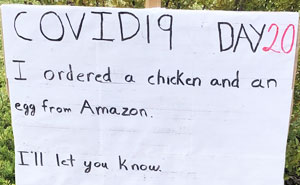 COVID19 DAY20
I ordered a chicken and an
egg from Amazon.
I'll let you know.